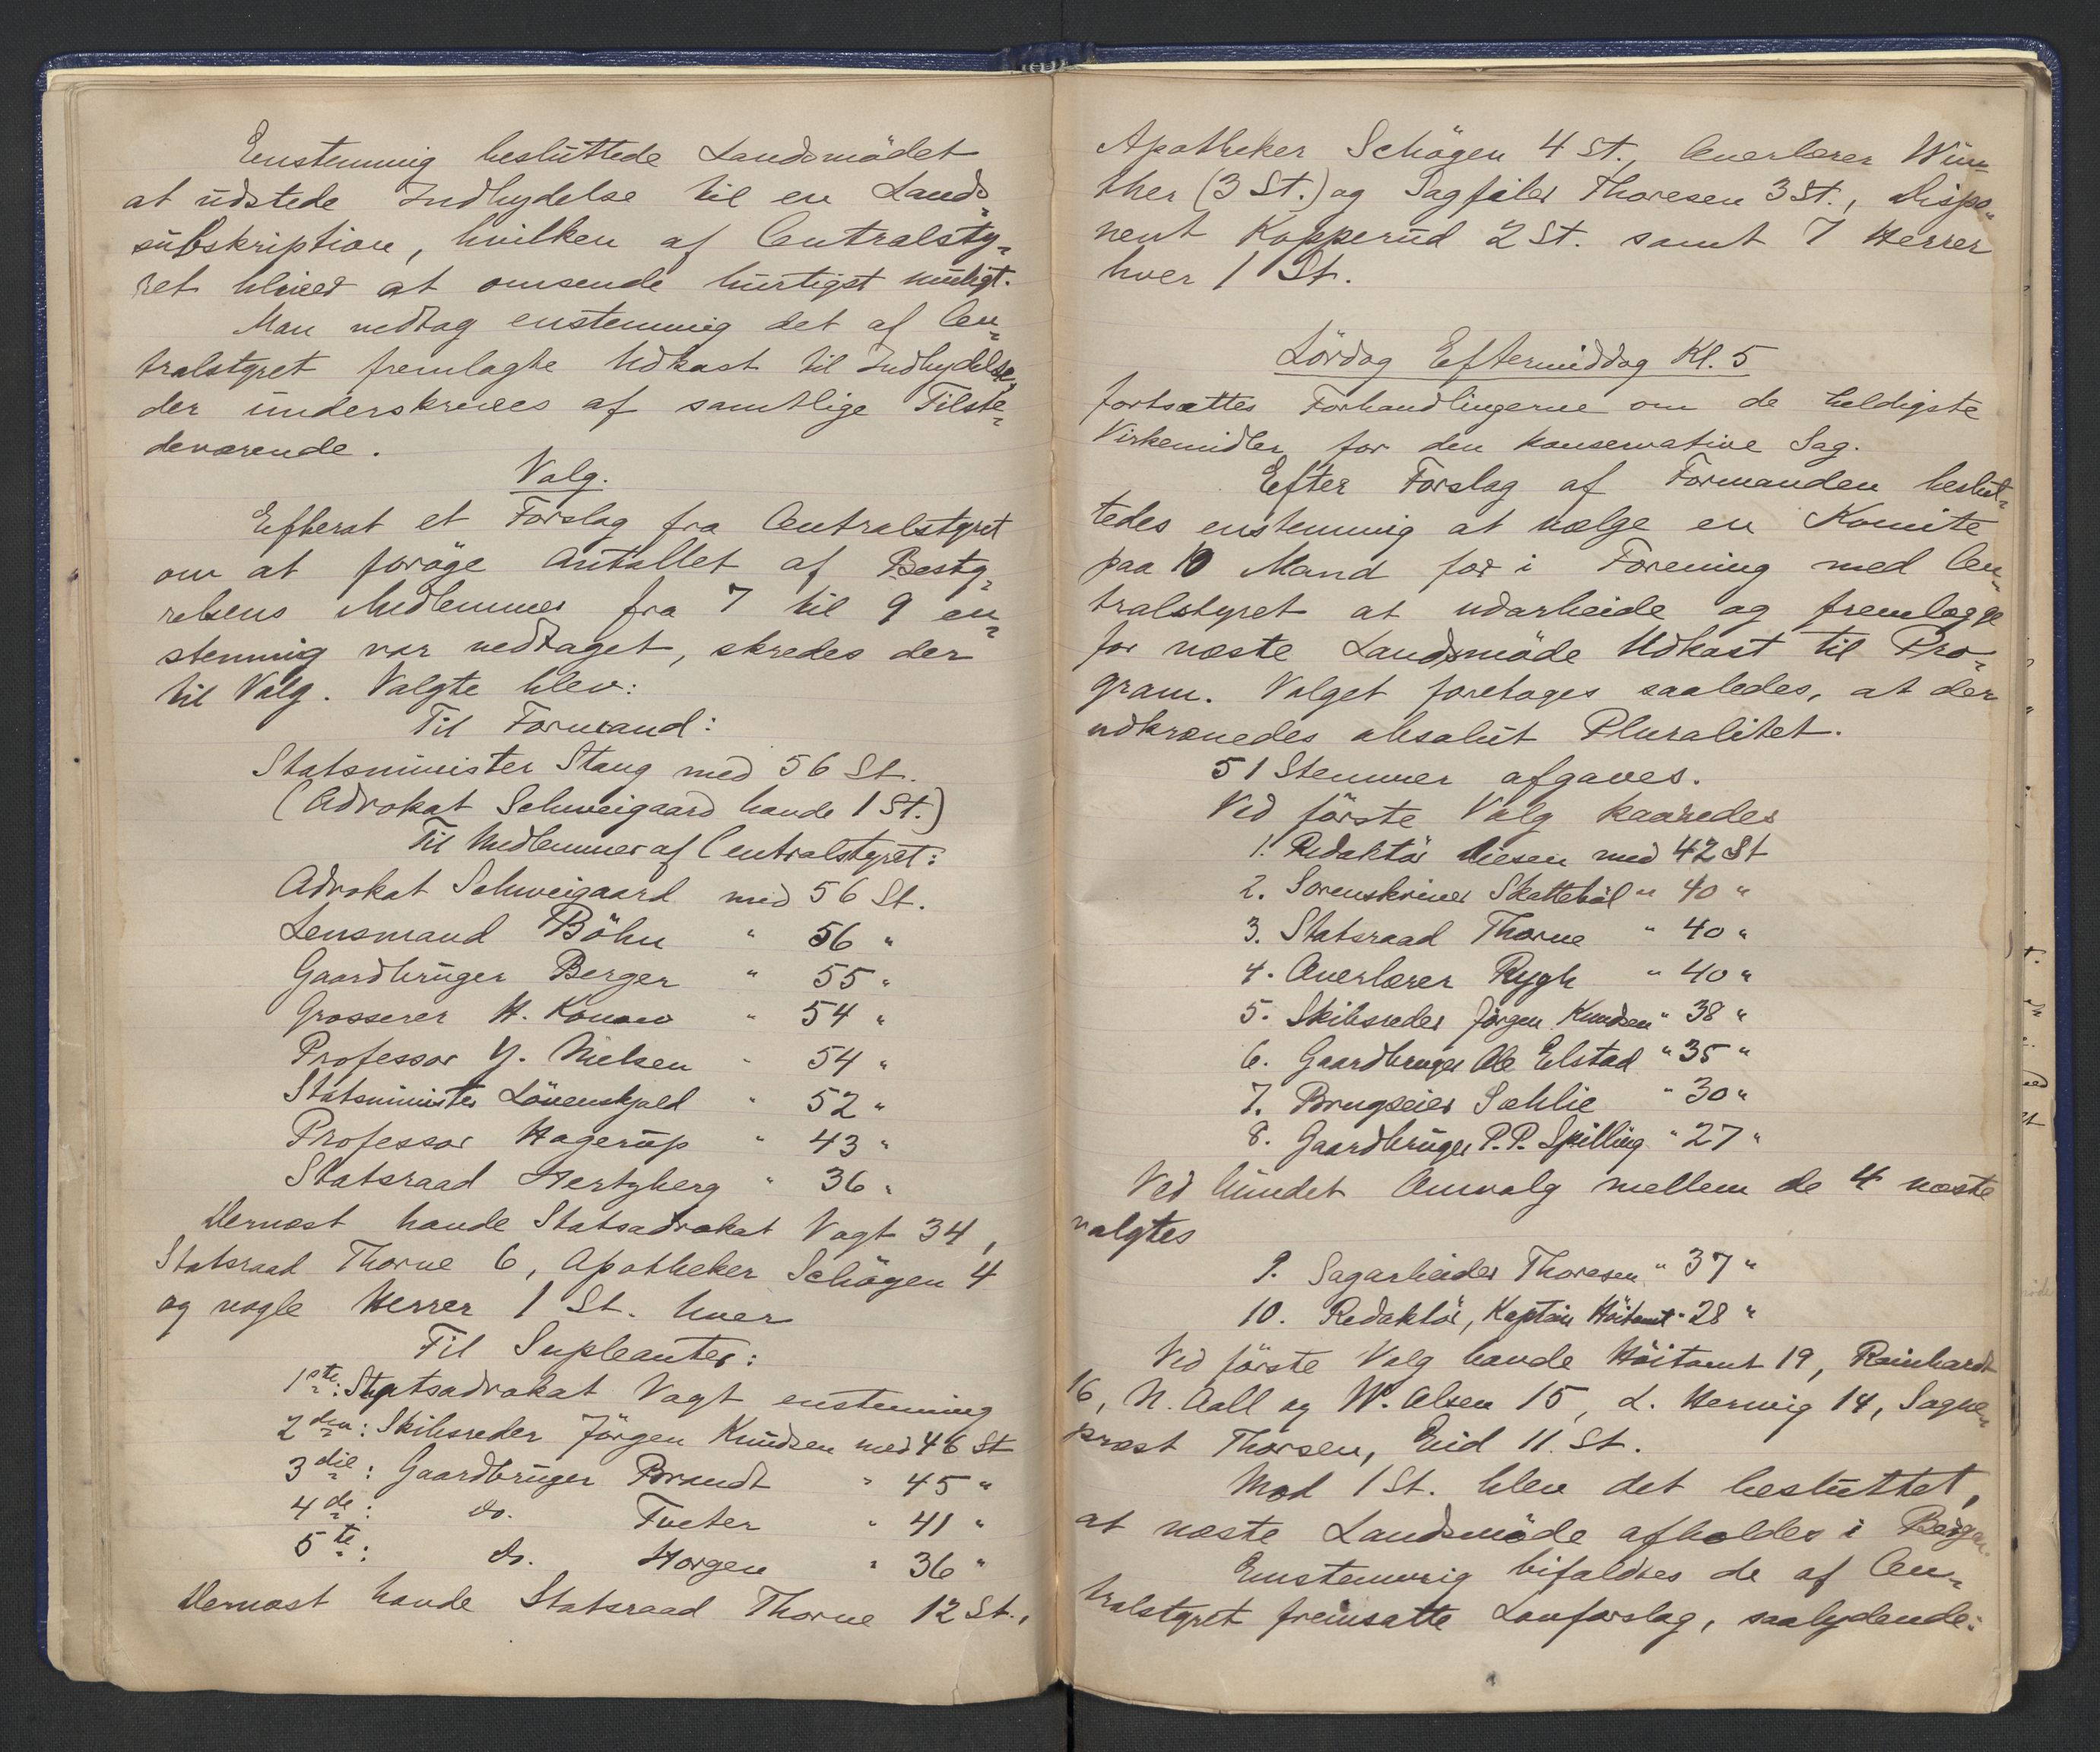 Enstemmig besluttede Landsmödet
at udstede Indbydelse til en Lands-
subskription, hvilken af Centralsty-
ret bliver at omsende hurtigst muligt.
Man vedtog enstemmig det af Cen-
tralstyret fremlagte Udkast til Indbydelse,
der underskreves af samtlige Tilste-
deværende.
Valg.
Efterat et Forslag fra Centralstyret
om at foröge Antallet af Besty-
relsens Medlemmer fra 7 til 9 en-
stemmig var vedtaget, skredes der
til Valg. Valgte blev:
Til Formand:
Statsminister Stang med 56 St.
(Advokat Schweigaard havde 1 St.)
Til Medlemmer af Centralstyret:
Advokat Schweigaard med 56 St.
Lensmand Böhn " 56 "
Gaardbruger Berger " 55 "
Grosserer H. Konow " 54 "
Professor Y. Nielsen " 54 "
Statsminister Lövenskjold " 52 "
Professor Hagerup " 43 "
Statsraad Hertzberg " 36 "
Dernæst havde Statsadvokat Vogt 34,
Statsraad Thorne 6, Apotheker Schögen 4
og nogle Herrer 1 St. hver
Til Supleanter:
1ste: Statsadvokat Vogt enstemmig
2den: Skibsreder Jörgen Knudsen med 46 St
3die: Gaardbruger Brandt " 45 "
4de: do. Tveter " 41 "
5te: do. Horgen " 36 "
Dernæst havde Statsraad Thorne 12 St.,
Apotheker Schögen 4 St., Overlærer Win-
ther (3 St.) og Sagfører Thoresen 3 St., Dispo-
nent Kopperud 2 St. samt 7 Herrer
hver 1 St.
Lördag Eftermiddag Kl. 5
fortsættes Forhandlingerne om de heldigste
Virkemidler for den konservative Sag.
Efter Forslag af Formanden beslut-
tedes enstemmig at vælge en Komite
paa 10 Mand for i Forening med Cen-
tralstyret at udarbeide og fremlægge
for næste Landsmöde Udkast til Pro-
gram. Valget foretoges saaledes, at der
udkrævedes absolut Pluralitet.
51 Stemmer afgaves.
Ved förste Valg kaaredes
1. Redaktör Diesen med 42 St
2. Sorenskriver Skattebøl " 40 "
3. Statsraad Thorne " 40 "
4. Overlærer Rygh " 40 "
5. Skibsreder Jörgen Knudsen " 38 "
6. Gaardbruger Ole Elstad " 35 "
7. Brugseier Sæhlie " 30 "
8. Gaardbruger P. P. Spilling " 27 "
Ved bundet Omvalg mellem de 4 næste
valgtes
9. Sagarbeider Thoresen " 37 "
10. Redaktör, Kaptein Höitomt " 28 "
Ved förste Valg havde Höitomt 19, Reinhardt
16, N. Aall og W. Olsen 15, L. Herwig 14, Sogne-
præst Thorsen, Eid 11. St.
Mod 1 St. blev det besluttet,
at næste Landsmöde afholdes i Bergen.
Enstemmig bifaldtes de af Cen-
tralstyret fremsatte Lovforslag, saalydende: